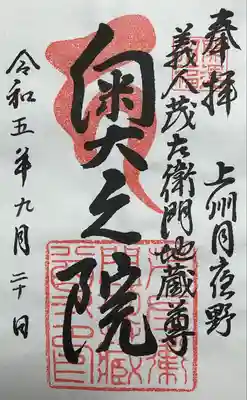 奉拝
上州月夜野
義人茂左衛門地蔵尊
奥之院
令和五年九月二十日